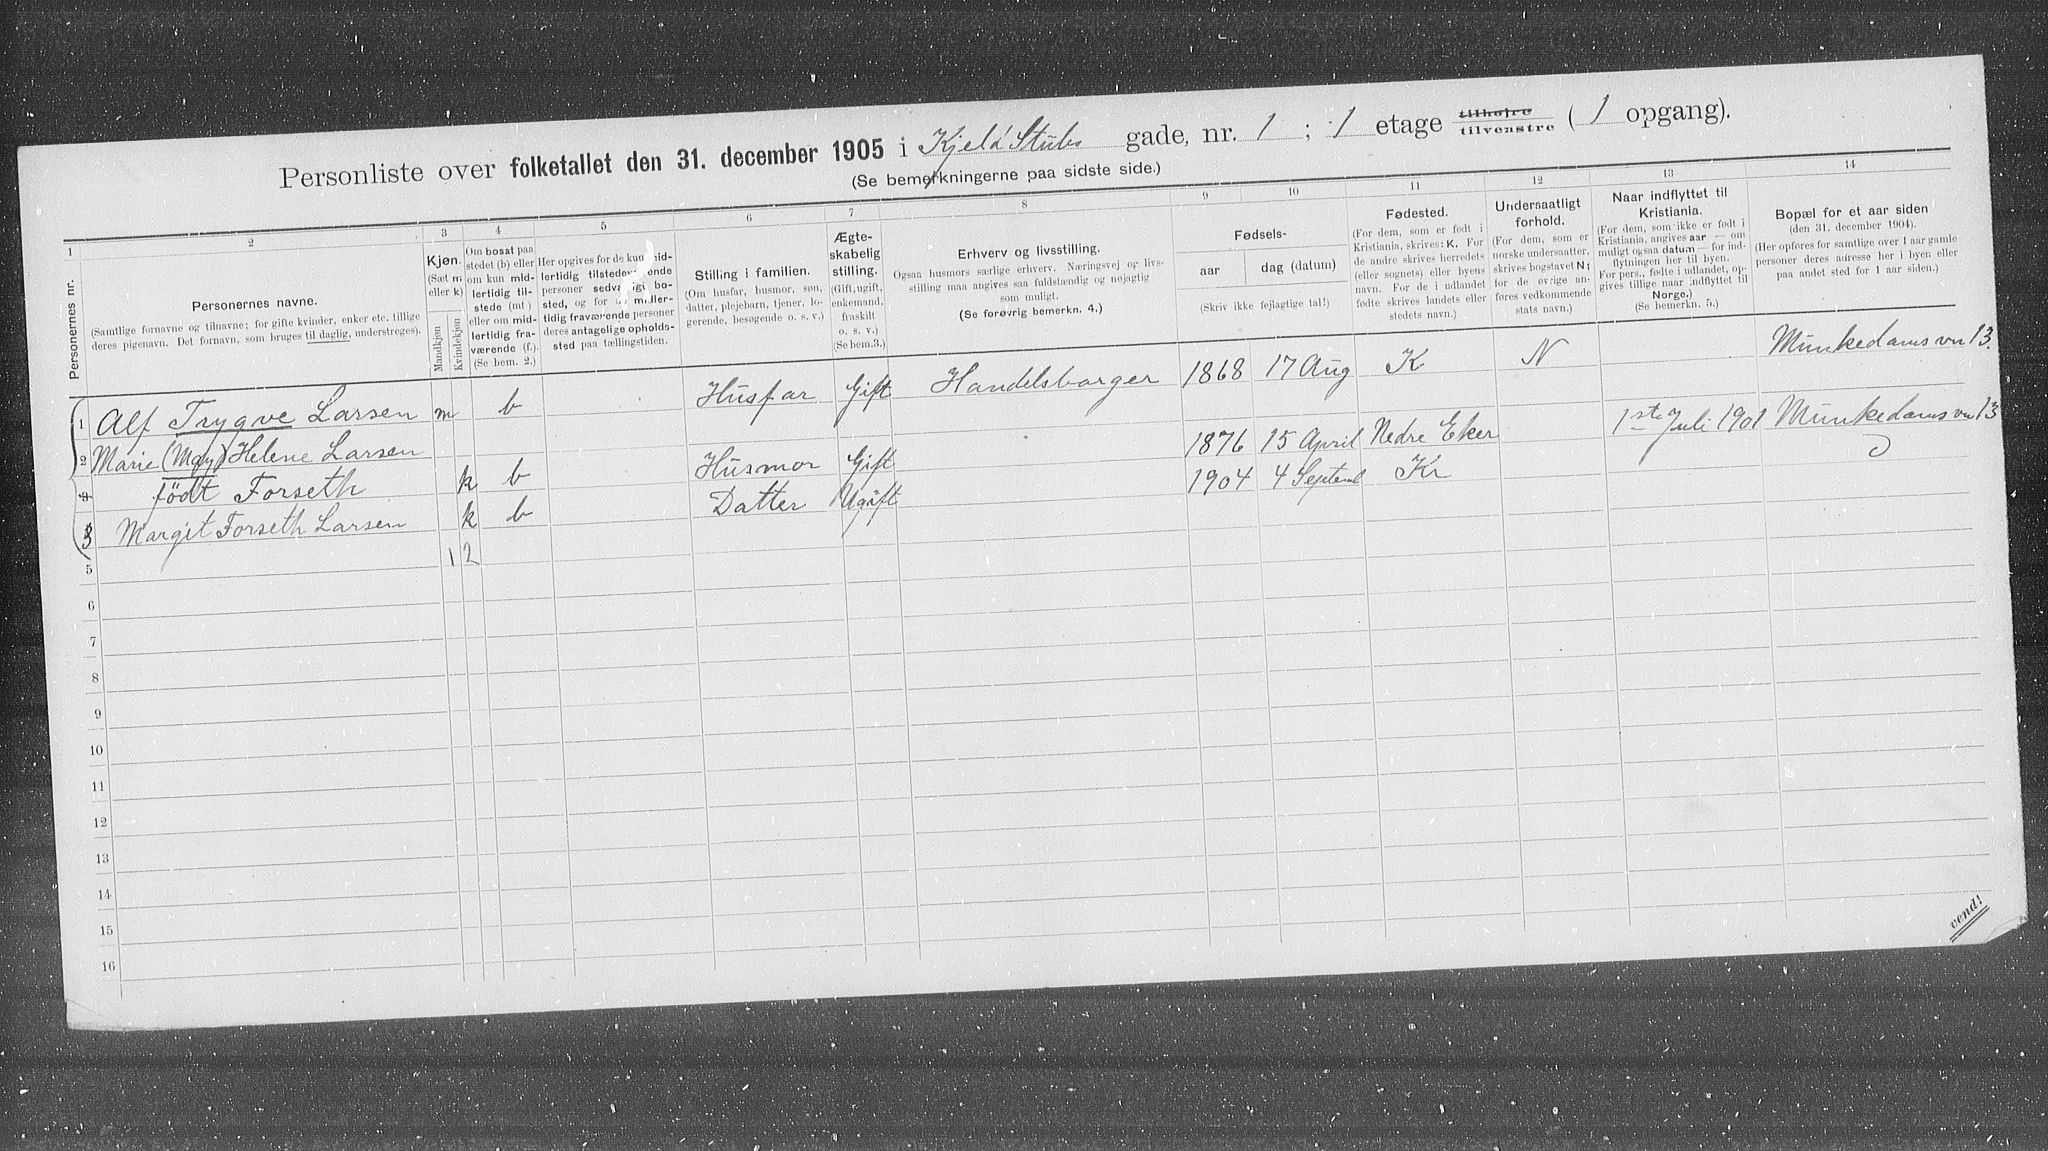 Personliste over folketallet den 31. december 1905 i Kjeld Stubs gade, nr. 1 ; 1 etage tilhøjre tilvenstre ( 1 opgang).
(Se bemerkningerne paa sidste side.)
1 2 3 4 5 6 7 8 9 10 11 12 13 14
Personernes nr.
Personernes navne.
(Samtlige fornavne og tilnavne; for gifte kvinder, enker etc. tillige
deres pigenavn. Det fornavn, som bruges til daglig, understreges).
Kjøn.
(Sæt m
eller k)
Mandkjøn
Kvindekjøn
Om bosat paa
stedet (b) eller
om kun mid-
lertidig til-
stede (mt)
eller om mid-
lertidig fra-
værende (f.).
(Se bem. 2.)
Her opgives for de kun mid-
lertidig tilstedeværende
personer sedvanlig bo-
sted, og for de midler-
tidig fraværende personer
deres antagelige opholds-
sted paa tællingstiden.
Stilling i familien.
(Om husfar, husmor, søn,
datter, plejebarn, tjener, lo-
gerende, besøgende o. s. v.)
Ægte-
skabelig
stilling.
(Gift, ugift,
enkemand,
fraskilt
o. s. v.)
(Se bem.3.)
Erhverv og livsstilling.
Ogsaa husmors særlige erhverv. Næringsvej og livs-
stilling maa angives saa fuldstændig og nøjagtig
som muligt.
(Se forøvrig bemerkn. 4.)
Fødsels-
aar
dag (datum)
(Skriv ikke fejlagtige tal!)
Fødested.
(For dem, som er født i
Kristiania, skrives: K. For
de andre skrives herredets
(eller sognets) eller byens
navn. For de i udlandet
fødte skrives landets eller
stedets navn.)
Undersaatligt
forhold.
(For dem, som er
norske undersaatter,
skrives bogstavet N;
for de øvrige an-
føres vedkommende
stats navn.)
Naar indflyttet til
Kristiania.
(For dem, som ikke er født i
Kristiania, angives aar — om
muligt ogsaa datum — for ind-
flytningen her til byen.
For pers., fødte i udlandet, op-
gives tillige naar indflyttet til
Norge.)
(Se bemerkn. 5.)
Bopæl for et aar siden
(den 31. december 1904).
(Her opføres for samtlige over 1 aar gamle
personer deres adresse her i byen eller
paa andet sted for 1 aar siden.)
1 Alf Trygve Larsen m b Husfar Gift Handelsborger 1868 17 Aug K N Munkedamsvn 13.
2 Marie (May) Helene Larsen 1876 15 April Nedre Eker 1ste Juli 1901 Munkedamsvn 13
født Forseth k b Husmor Gift
3 Margit Forseth Larsen k b Datter Ugift 1904 4 Septemb Kr
1 2
5
6
7
8
9
10
11
12
13
14
15
16
vend!